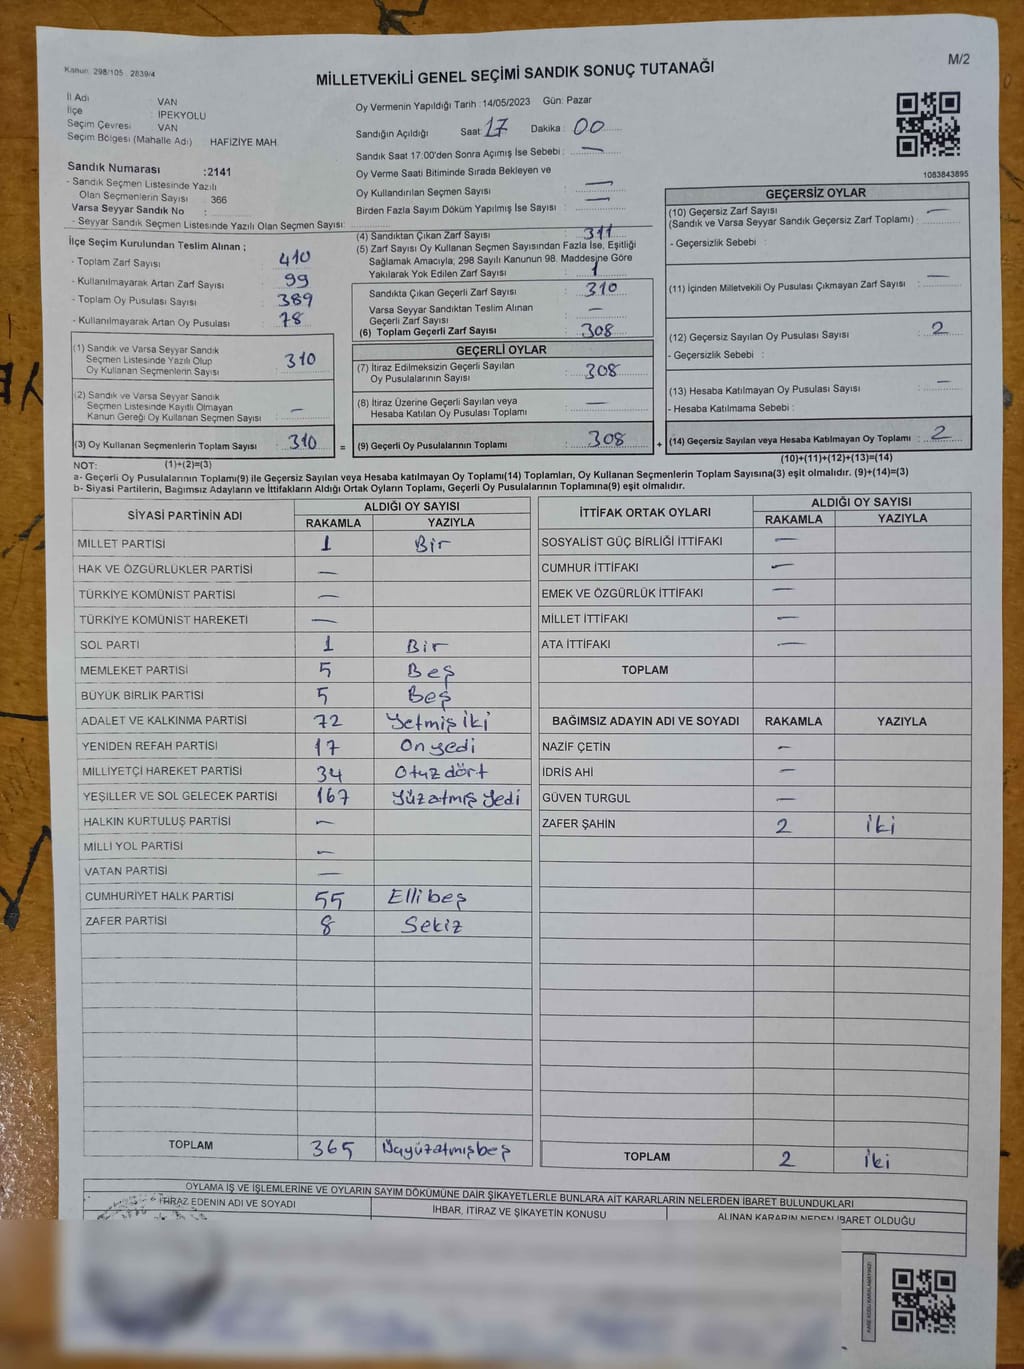 Kanun: 298/105 , 2839/4
M/2
MİLLETVEKİLİ GENEL SEÇİMİ SANDIK SONUÇ TUTANAĞI
İl Adı VAN
İlçe İPEKYOLU
Seçim Çevresi VAN
Seçim Bölgesi (Mahalle Adı) : HAFIZİYE MAH.
Sandık Numarası :2141
- Sandık Seçmen Listesinde Yazılı
Olan Seçmenlerin Sayısı : 366
Varsa Seyyar Sandık No :
- Seyyar Sandık Seçmen Listesinde Yazılı Olan Seçmen Sayısı:
Oy Vermenin Yapıldığı Tarih :14/05/2023 Gün: Pazar
Sandığın Açıldığı Saat: 17 Dakika : 00
Sandık Saat 17:00'den Sonra Açımış İse Sebebi : —
Oy Verme Saati Bitiminde Sırada Bekleyen ve
Oy Kullandırılan Seçmen Sayısı : —
Birden Fazla Sayım Döküm Yapılmış İse Sayısı : —
1083843895
İlçe Seçim Kurulundan Teslim Alınan ;
- Toplam Zarf Sayısı : 410
- Kullanılmayarak Artan Zarf Sayısı : 99
- Toplam Oy Pusulası Sayısı : 389
- Kullanılmayarak Artan Oy Pusulası : 78
(1) Sandık ve Varsa Seyyar Sandık
Seçmen Listesinde Yazılı Olup
Oy Kullanan Seçmenlerin Sayısı : 310
(2) Sandık ve Varsa Seyyar Sandık
Seçmen Listesinde Kayıtlı Olmayan
Kanun Gereği Oy Kullanan Seçmen Sayısı : —
(3) Oy Kullanan Seçmenlerin Toplam Sayısı : 310 =
(1)+(2)=(3)
(4) Sandıktan Çıkan Zarf Sayısı : 311
(5) Zarf Sayısı Oy Kullanan Seçmen Sayısından Fazla İse, Eşitliği
Sağlamak Amacıyla, 298 Sayılı Kanunun 98. Maddesine Göre
Yakılarak Yok Edilen Zarf Sayısı : 1
Sandıkta Çıkan Geçerli Zarf Sayısı : 310
Varsa Seyyar Sandıktan Teslim Alınan
Geçerli Zarf Sayısı : —
(6) Toplam Geçerli Zarf Sayısı : 308
GEÇERLİ OYLAR
(7) İtiraz Edilmeksizin Geçerli Sayılan
Oy Pusulalarının Sayısı : 308
(8) İtiraz Üzerine Geçerli Sayılan veya
Hesaba Katılan Oy Pusulası Toplamı : —
(9) Geçerli Oy Pusulalarının Toplamı : 308 +
GEÇERSİZ OYLAR
(10) Geçersiz Zarf Sayısı
(Sandık ve Varsa Seyyar Sandık Geçersiz Zarf Toplamı) : —
- Geçersizlik Sebebi :
(11) İçinden Milletvekili Oy Pusulası Çıkmayan Zarf Sayısı : —
(12) Geçersiz Sayılan Oy Pusulası Sayısı : 2
- Geçersizlik Sebebi :
(13) Hesaba Katılmayan Oy Pusulası Sayısı : —
- Hesaba Katılmama Sebebi :
(14) Geçersiz Sayılan veya Hesaba Katılmayan Oy Toplamı : 2
(10)+(11)+(12)+(13)=(14)
NOT:
a- Geçerli Oy Pusulalarının Toplamı(9) ile Geçersiz Sayılan veya Hesaba katılmayan Oy Toplamı(14) Toplamları, Oy Kullanan Seçmenlerin Toplam Sayısına(3) eşit olmalıdır. (9)+(14)=(3)
b- Siyasi Partilerin, Bağımsız Adayların ve İttifakların Aldığı Ortak Oyların Toplamı, Geçerli Oy Pusulalarının Toplamına(9) eşit olmalıdır.
SİYASİ PARTİNİN ADI ALDIĞI OY SAYISI
RAKAMLA YAZIYLA
MİLLET PARTİSİ 1 Bir
HAK VE ÖZGÜRLÜKLER PARTİSİ —
TÜRKİYE KOMÜNİST PARTİSİ —
TÜRKİYE KOMÜNİST HAREKETİ —
SOL PARTİ 1 Bir
MEMLEKET PARTİSİ 5 Beş
BÜYÜK BİRLİK PARTİSİ 5 Beş
ADALET VE KALKINMA PARTİSİ 72 Yetmiş iki
YENİDEN REFAH PARTİSİ 17 On yedi
MİLLİYETÇİ HAREKET PARTİSİ 34 Otuz dört
YEŞİLLER VE SOL GELECEK PARTİSİ 167 Yüzatmış Yedi
HALKIN KURTULUŞ PARTİSİ —
MİLLİ YOL PARTİSİ —
VATAN PARTİSİ —
CUMHURİYET HALK PARTİSİ 55 Elli beş
ZAFER PARTİSİ 8 Sekiz
TOPLAM 365 Üçyüzatmışbeş
İTTİFAK ORTAK OYLARI ALDIĞI OY SAYISI
RAKAMLA YAZIYLA
SOSYALİST GÜÇ BİRLİĞİ İTTİFAKI —
CUMHUR İTTİFAKI —
EMEK VE ÖZGÜRLÜK İTTİFAKI —
MİLLET İTTİFAKI —
ATA İTTİFAKI —
TOPLAM
BAĞIMSIZ ADAYIN ADI VE SOYADI RAKAMLA YAZIYLA
NAZİF ÇETİN —
İDRİS AHİ —
GÜVEN TURGUL —
ZAFER ŞAHİN 2 iki
TOPLAM 2 iki
OYLAMA İŞ VE İŞLEMLERİNE VE OYLARIN SAYIM DÖKÜMÜNE DAİR ŞİKAYETLERLE BUNLARA AİT KARARLARIN NELERDEN İBARET BULUNDUKLARI
İTİRAZ EDENİN ADI VE SOYADI İHBAR, İTİRAZ VE ŞİKAYETİN KONUSU ALINAN KARARIN NEDEN İBARET OLDUĞU